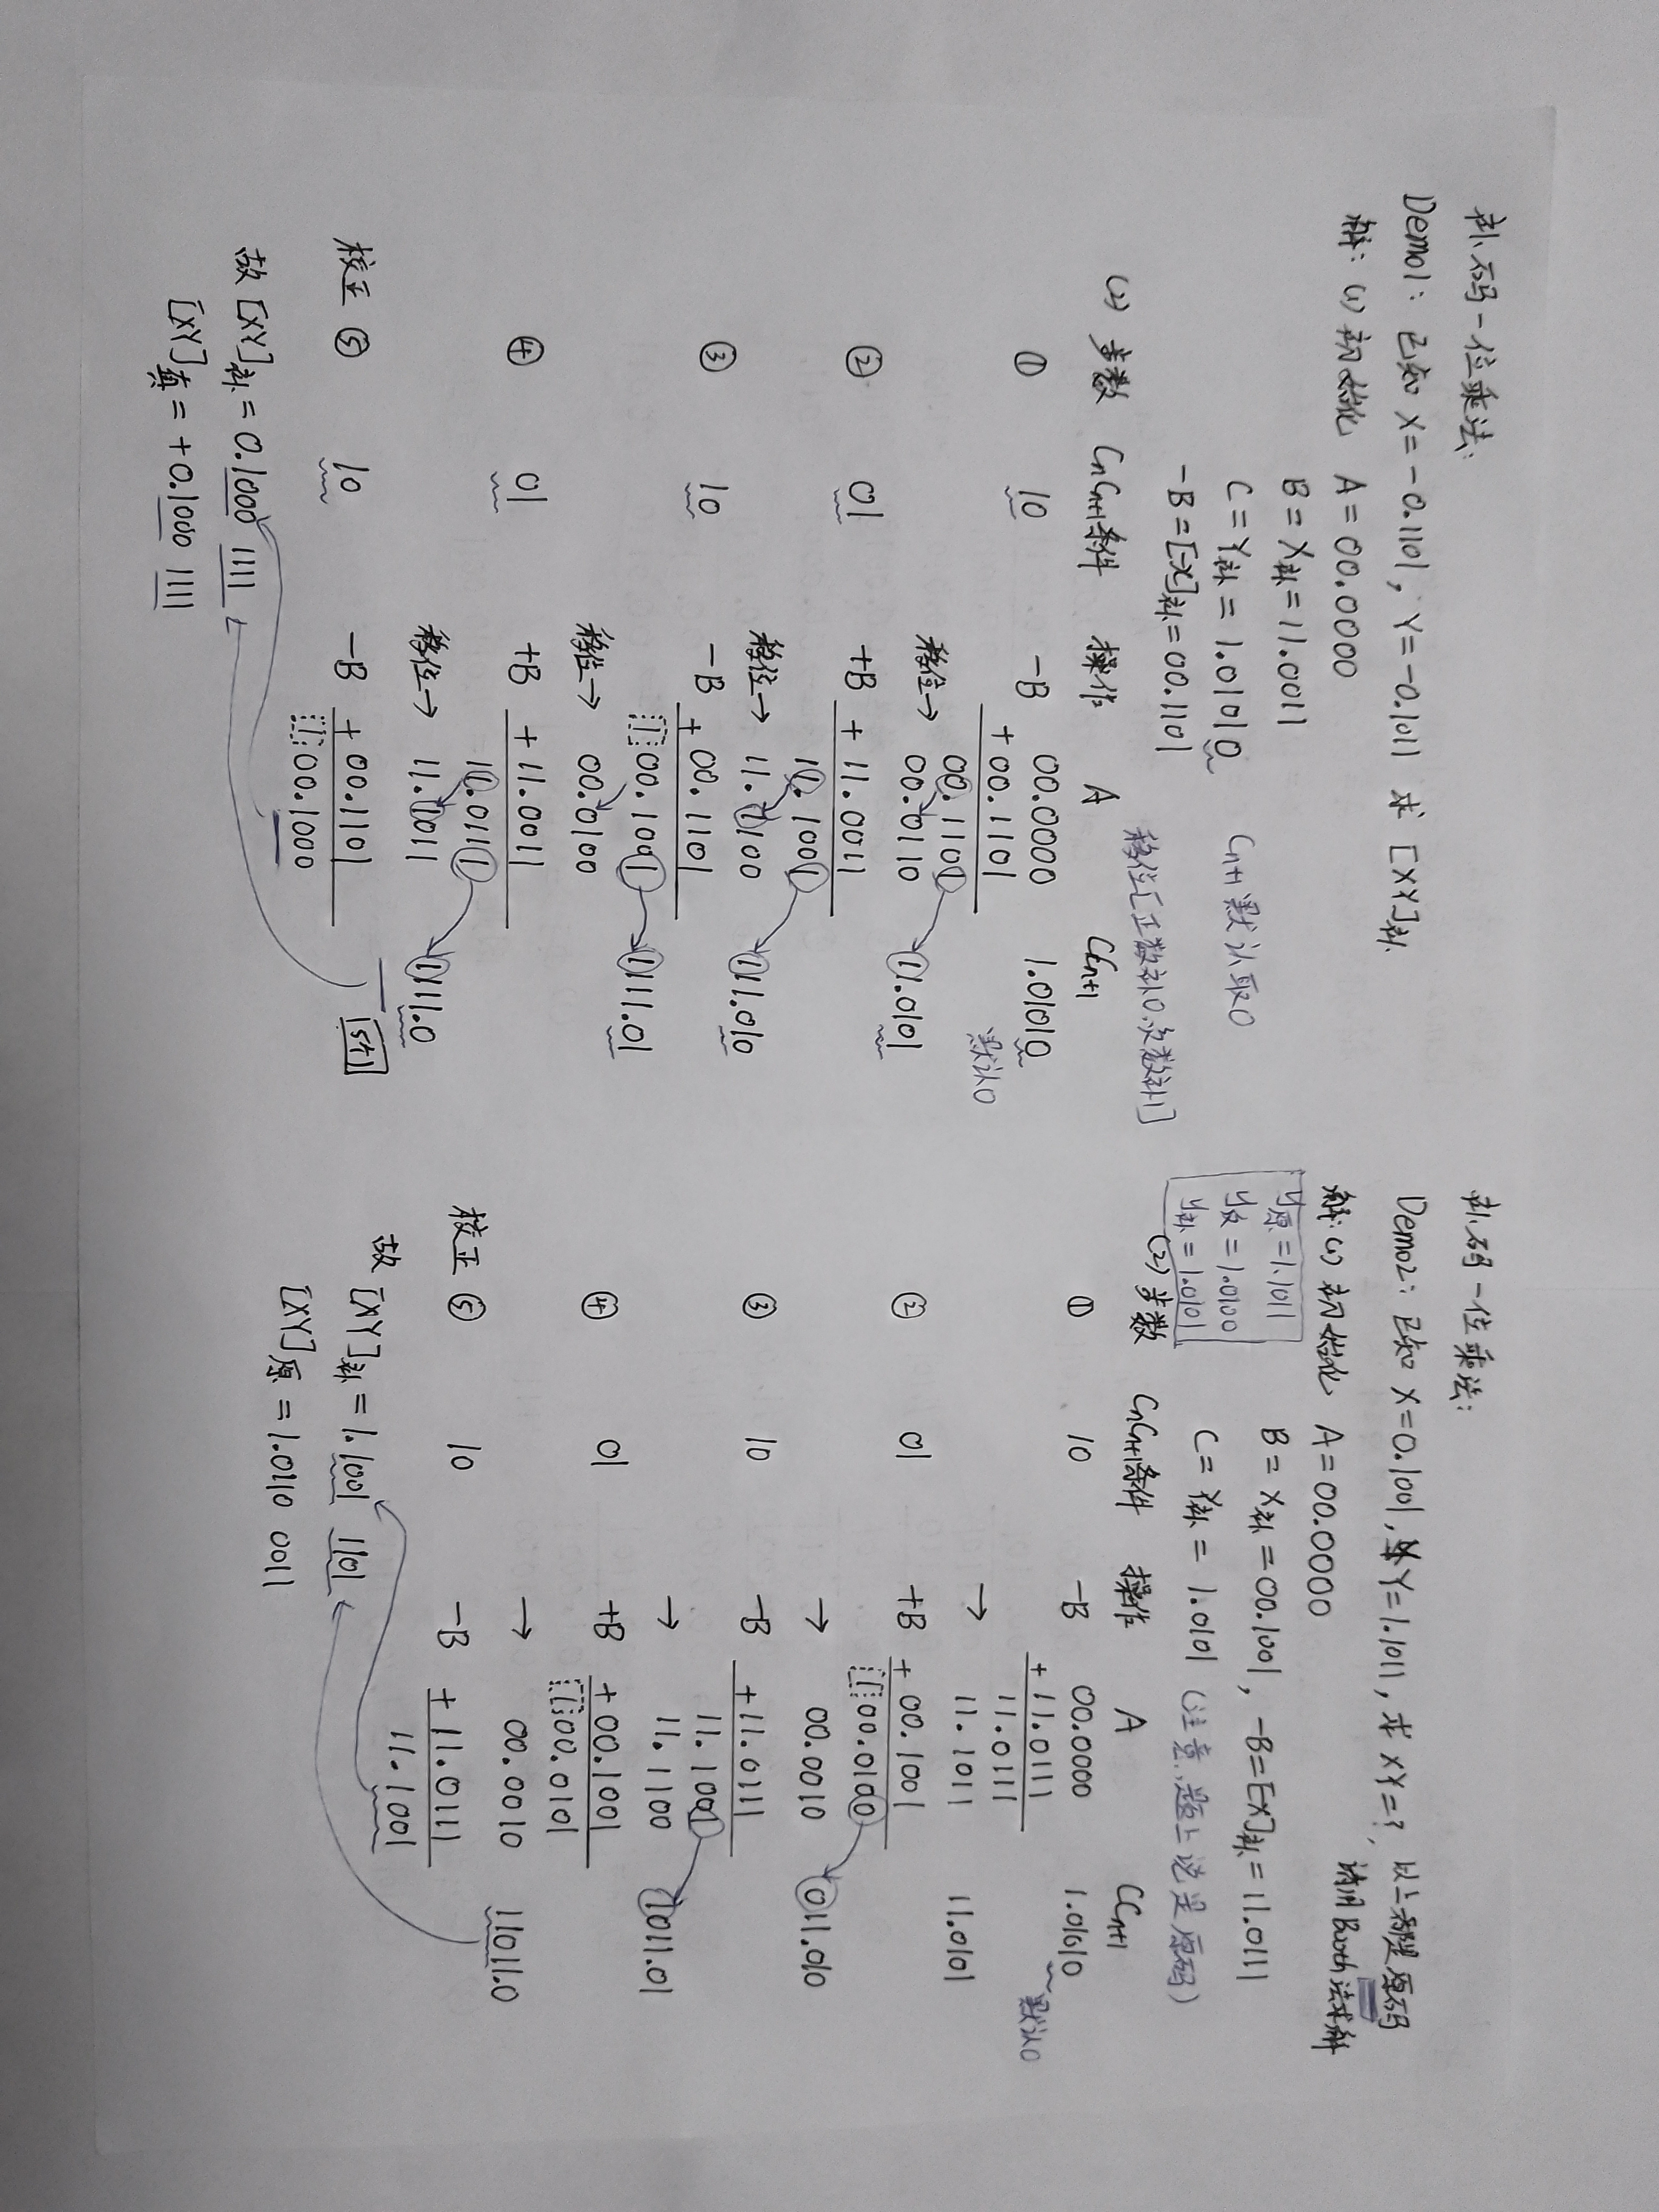 补码一位乘法:
Demo1: 已知 X=-0.1101, Y=-0.1011 求 [XY]补
解: (1) 初始化 A=00.0000
B=X补=11.0011
C=Y补=1.01010 Cn+1默认取0
-B=[-X]补=00.1101
移位[正数补0,负数补1]
(2) 步数 CnCn+1条件 操作 A CCn+1
① 10 -B 00.0000 1.01010
+00.1101 默认0
00.1101
移位→ 00.0110 11.0101
② 01 +B +11.0011
11.1001
移位→ 11.1100 111.010
③ 10 -B +00.1101
1 00.1001 1111.01
移位→ 00.0100
④ 01 +B +11.0011
11.0111
移位→ 11.1011 1111.0
校正 ⑤ 10 -B +00.1101
1 00.1000
故 [XY]补=0.1000 1111
[XY]真=+0.1000 1111
补码一位乘法:
Demo2: 已知 X=0.1001, Y=1.1011, 求 XY=?, 以上都是原码
请用Booth法求解
解: (1) 初始化 A=00.0000
y原=1.1011
y反=1.0100
y补=1.0101
B=X补=00.1001, -B=[X]补=11.0111
C=Y补=1.0101 (注意,题上说是原码)
(2) 步数 CnCn+1条件 操作 A CCn+1
① 10 -B 00.0000 1.01010
+11.0111 默认0
11.0111
→ 11.1011 11.0101
② 01 +B +00.1001
1 00.0100
→ 00.0010 011.010
③ 10 -B +11.0111
11.1001
→ 11.1100 1011.01
④ 01 +B +00.1001
1 00.0101
→ 00.0010 11011.0
校正 ⑤ 10 -B +11.0111
11.1001
故 [XY]补=1.1001 1101
[XY]原=1.0110 0011